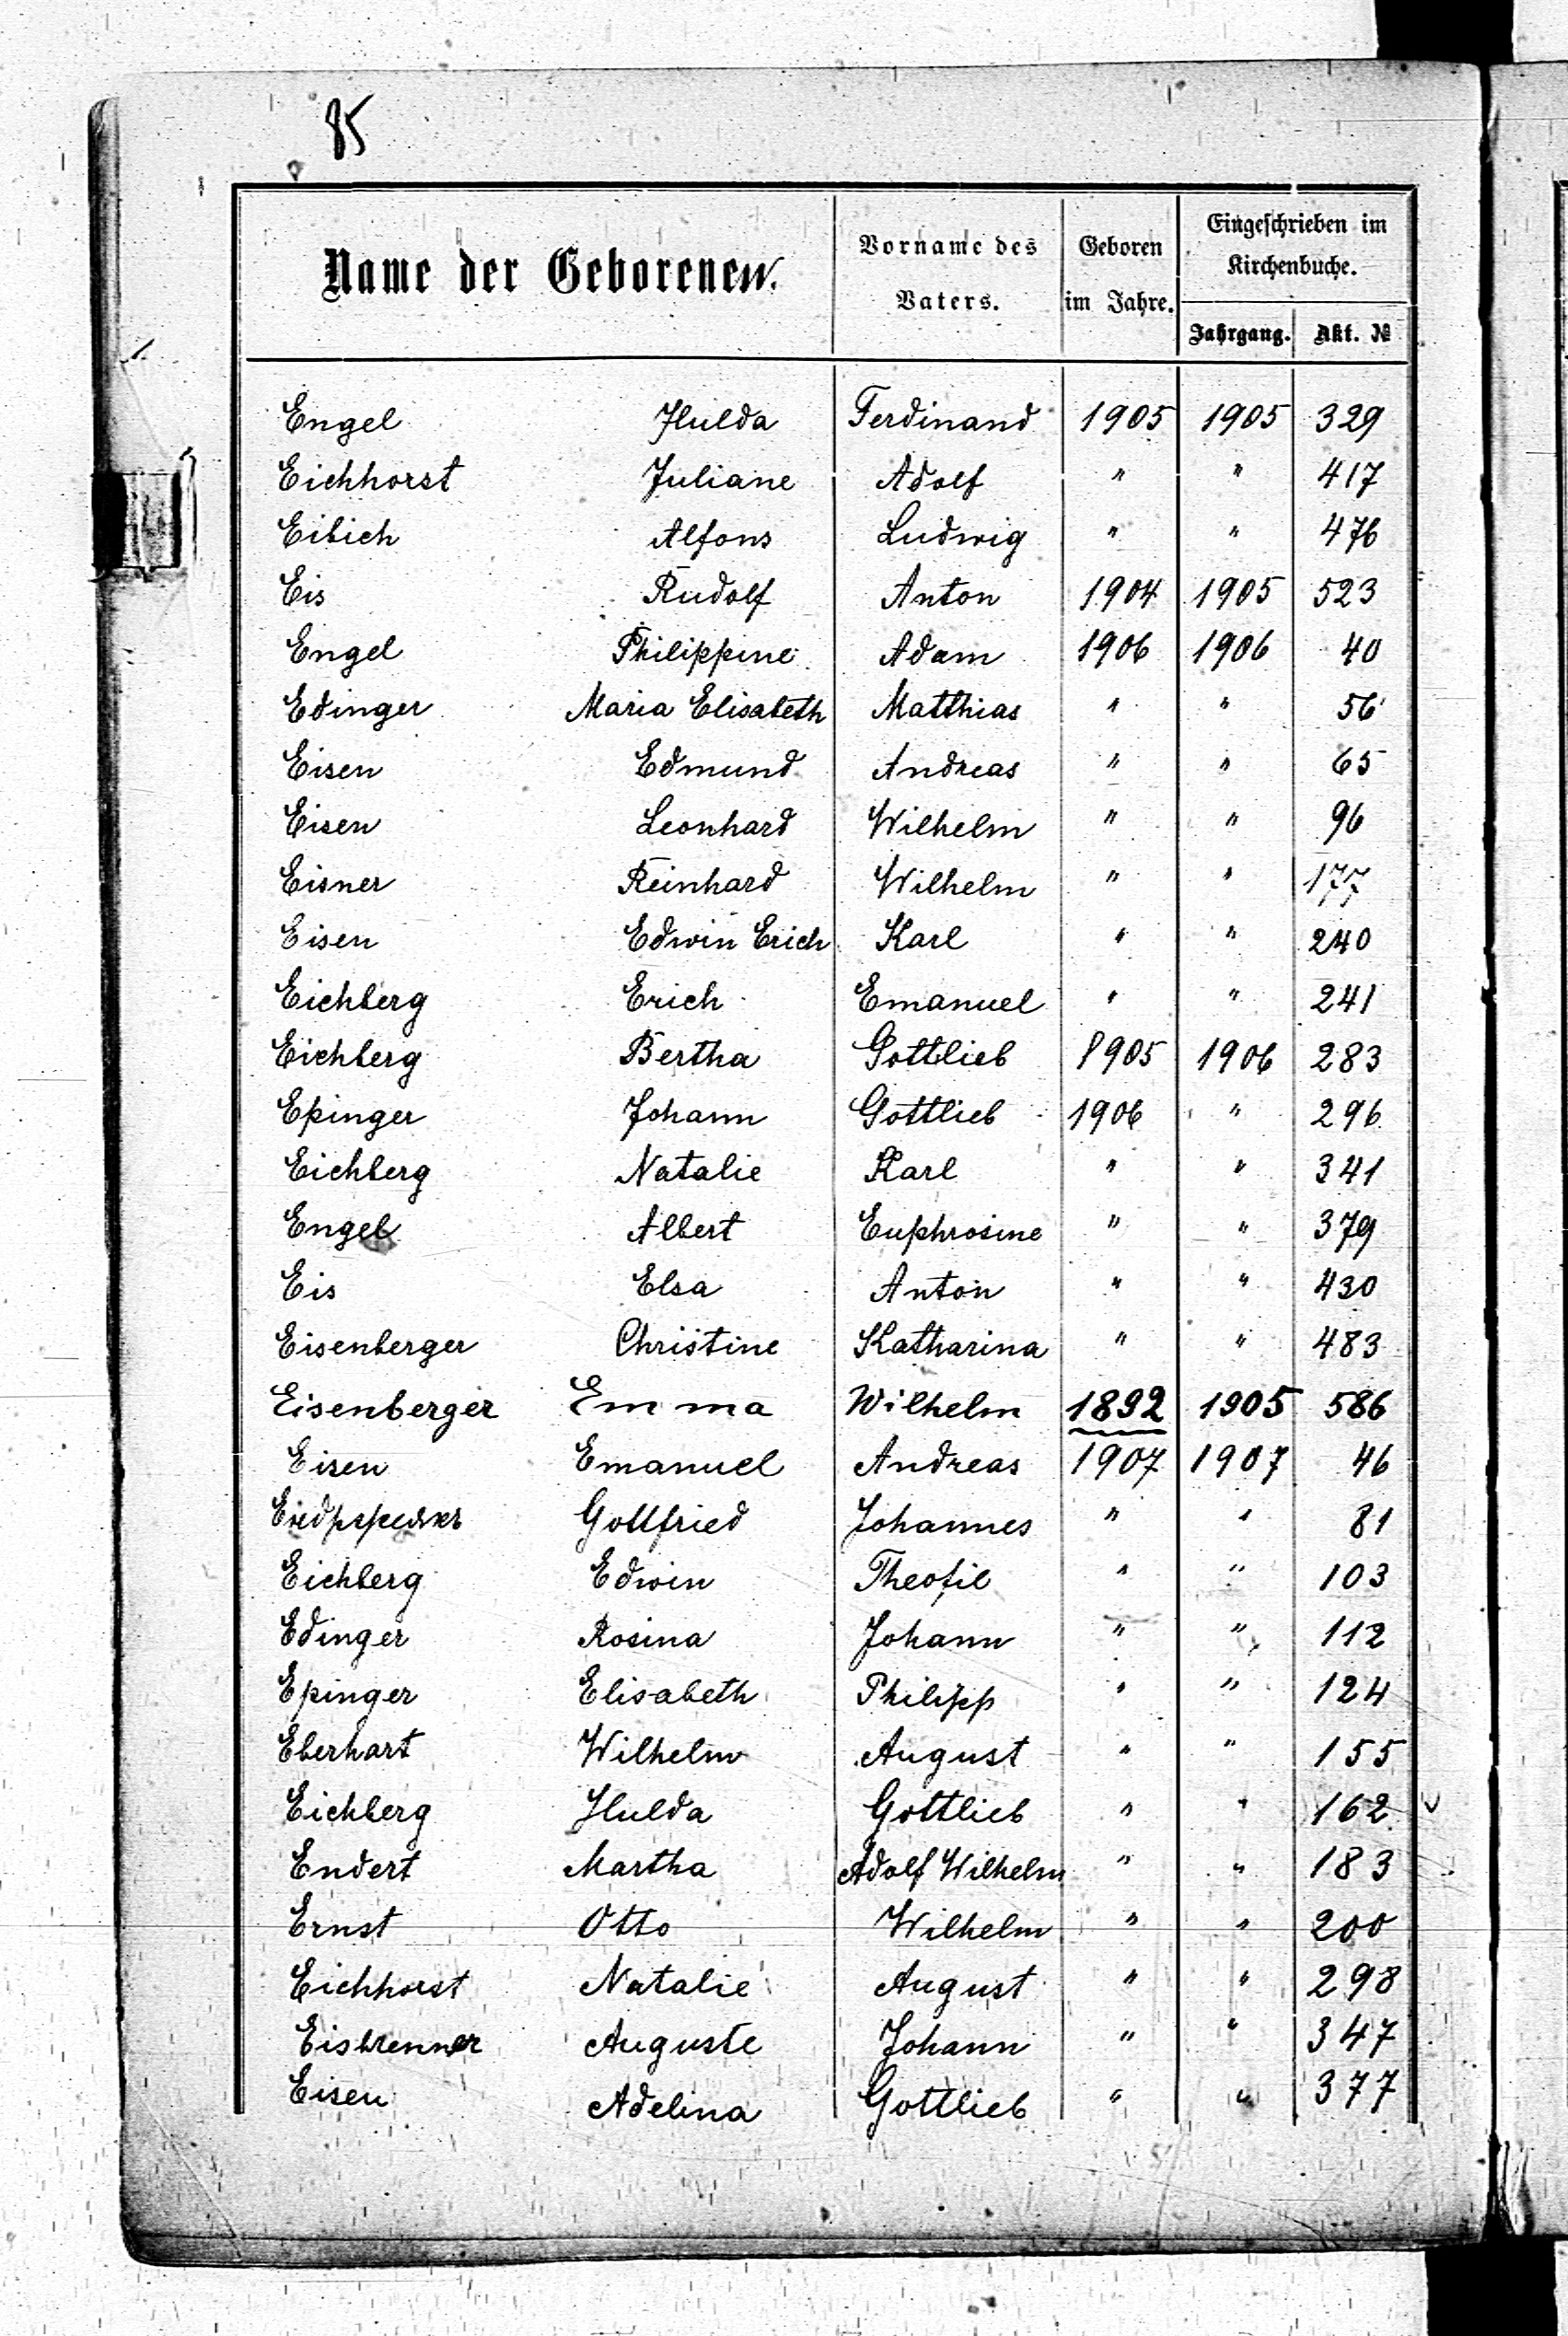 85
Name der Geborenen.
Vorname des Vaters.
Geboren im Jahre.
Eingeschrieben im Kirchenbuche.
Jahrgang. Akt. №
Engel Hulda Ferdinand 1905 1905 329
Eichhorst Juliane Adolf " " 417
Eibich Alfons Ludwig " " 476
Eis Rudolf Anton 1904 1905 523
Engel Philippine Adam 1906 1906 40
Edinger Maria Elisabeth Matthias " " 56
Eisen Edmund Andreas " " 65
Eisen Leonhard Wilhelm " " 96
Eisner Reinhard Wilhelm " " 177
Eisen Edwin Erich Karl " " 240
Eichberg Erich Emanuel " " 241
Eichberg Bertha Gottlieb 1905 1906 283
Epinger Johann Gottlieb 1906 " 296
Eichberg Natalie Karl " " 341
Engel Albert Euphrosine " " 379
Eis Elsa Anton " " 430
Eisenberger Christine Katharina " " 483
Eisenberger Emma Wilhelm 1892 1905 586
Eisen Emanuel Andreas 1907 1907 46
Gottfried Johannes " " 81
Eichberg Edwin Theofil " " 103
Edinger Rosina Johann " " 112
Epinger Elisabeth Philipp " " 124
Eberhart Wilhelm August " " 155
Eichberg Hulda Gottlieb " " 162
Endert Martha Adolf Wilhelm " " 183
Ernst Otto Wilhelm " " 200
Eichhorst Natalie August " " 298
Eisbrenner Auguste Johann " " 347
Eisen Adelina Gottlieb " " 377